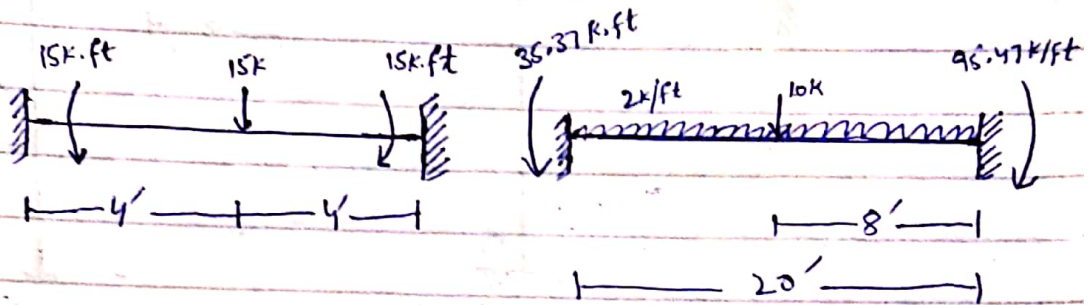 15k.ft
15k
15k.ft
35.37k.ft
2k/ft
10k
95.47k/ft
4'
4'
8'
20'